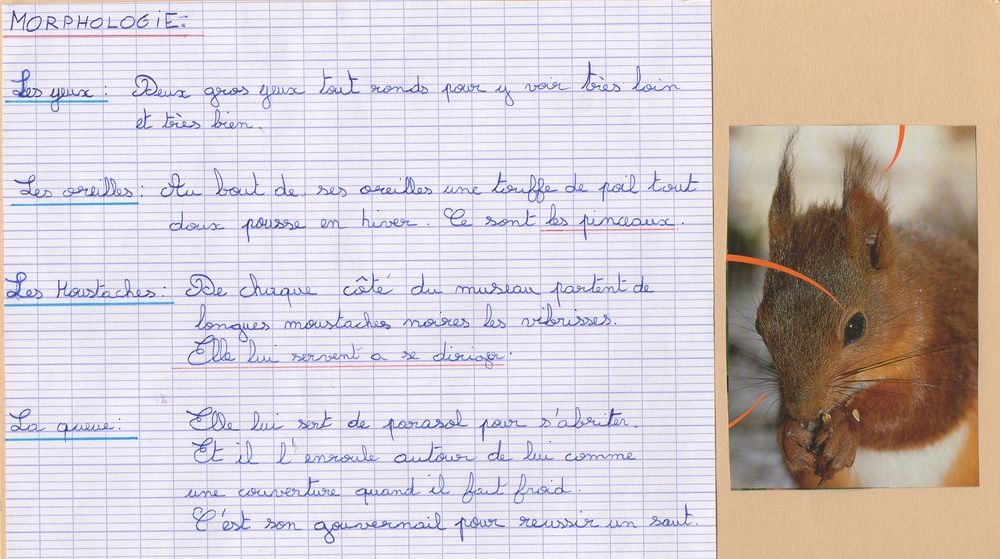 MORPHOLOGIE:
Les yeux : Deux gros yeux tout ronds pour y voir très loin
et très bien.
Les oreilles : Au bout de ses oreilles une touffe de poil tout
doux pousse en hiver. Ce sont les pinceaux.
Les Moustaches : De chaque côté du museau partent de
longues moustaches noires les vibrisses.
Elle lui servent a se diriger.
La queue : Elle lui sert de parasol pour s'abriter.
Et il l'enroule autour de lui comme
une couverture quand il fait froid.
C'est son gouvernail pour reussir un saut.